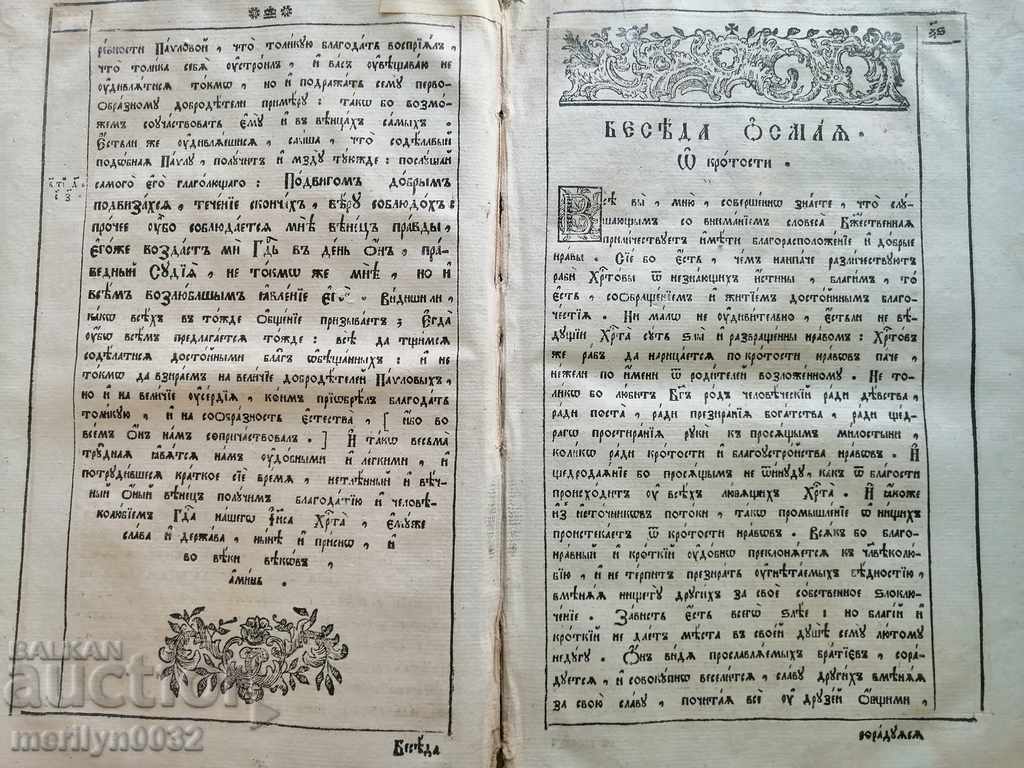 ревности Пауловой , что толикую благодать воспрїялъ ,
что толика себѧ оустроилъ , и васъ оувѣщаваю не
оудивлѧтисѧ токмѡ , но и подражать сему перво-
образному добродѣтели примѣру : такѡ бо возмо-
жемъ соучаствовать ему и въ вѣнцахъ самыхъ .
Естьли же оудивлѧешисѧ , слыша , что содѣлавый
подѡбная Паулу , получитъ и мзду туюжде : послушай
самого егѡ глаголющаго : Подвигомъ добрымъ
подвизахсѧ , теченїе скончахъ , вѣру соблюдохъ :
прочее оубо соблюдаетсѧ мнѣ вѣнецъ правды ,
егѡже воздастъ ми Гдь въ день онъ , пра-
ведный Судїѧ , не токмѡ же мнѣ , но и
всѣмъ возлюбльшымъ ꙗвленїе егѡ Видиши ли ,
какѡ всѣхъ въ тожде общенїе призываетъ ; Егда
оубѡ всѣмъ предлагаетсѧ тожде : всѣ да тщимсѧ
содѣлатисѧ достойными благъ ѡбѣщанныхъ : и не
токмѡ да взираемъ на величїе добродѣтелей Пауловыхъ ,
но и на величїе оусердїѧ , коимъ прїобрѣлъ благодать
толикую , и на сообразность естества , [ ибо во
всемъ онъ намъ сопричаствовалъ . ] И такѡ весьма
трудная ꙗвѧтсѧ намъ оудобными и легкими , и
потрудившесѧ краткое сїе времѧ , нетлѣнный и вѣч-
ный оный вѣнецъ получимъ благодатїю и человѣ-
колюбїемъ Гда нашегѡ Їиса Хрта , емуже
слава и держава , нынѣ и приснѡ , и
во вѣки вѣковъ ,
аминь .
Бесѣда
БЕСѢДА ОСМАѦ .
Ѡ кротости .
Всѣ вы , мню , совершеннѡ знаете , что слу-
шающымъ со вниманїемъ словеса Бжественная
приличествуетъ имѣти благорасположенїе и добрые
нравы . Сїе бо есть , чемъ наипаче различествуютъ
раби Хртовы ѿ незнающихъ истины , благимъ , то
есть , сообращенїемъ и житїемъ достойнымъ благо-
честїѧ . Ни малѡ не оудивительно , естьли не вѣ-
дущїи Хрта суть ѕлы и развращены нравомъ : Хртовъ
же рабъ да нарицаетсѧ по кротости нравовъ паче ,
нежели по имени ѿ родителей возложенному . Не то-
ликѡ бо любитъ Бгъ родъ человѣческїй ради дѣвства ,
ради поста , ради презиранїѧ богатства , ради щед-
рагѡ простиранїѧ руки къ просѧщымъ милостыни ,
коликѡ ради кротости и благоустройства нравовъ . И
щедродаѧнїе бо просѧщымъ не ѿинуду , какъ ѿ благости
происходитъ оу всѣхъ любѧщихъ Хрта . И ꙗкоже
изъ источниковъ потоки , такѡ промышленїе ѡ нищихъ
проистекаетъ ѿ кротости нравовъ . Всѧкъ бо благо-
нравный и кроткїй оудобнѡ преклонѧетсѧ къ члвѣколю-
бїю , и не терпитъ презирать оугнѣтаемыхъ бѣдностїю ,
вмѣнѧѧ нищету другихъ за свое собственное ѕлоклю-
ченїе . Зависть есть всегѡ ѕлѣе : но благїй и
кроткїй не даетъ мѣста въ своей душѣ сему лютому
недугу . Онъ видѧ прославлѧемыхъ братїевъ , сора-
дуетсѧ , и совокупнѡ веселитсѧ , славу другихъ вмѣнѧѧ
за свою славу , почитаѧ всѐ оу друзей общими ,
сорадуѧсѧ
BALKAN
auction
merilyn0032